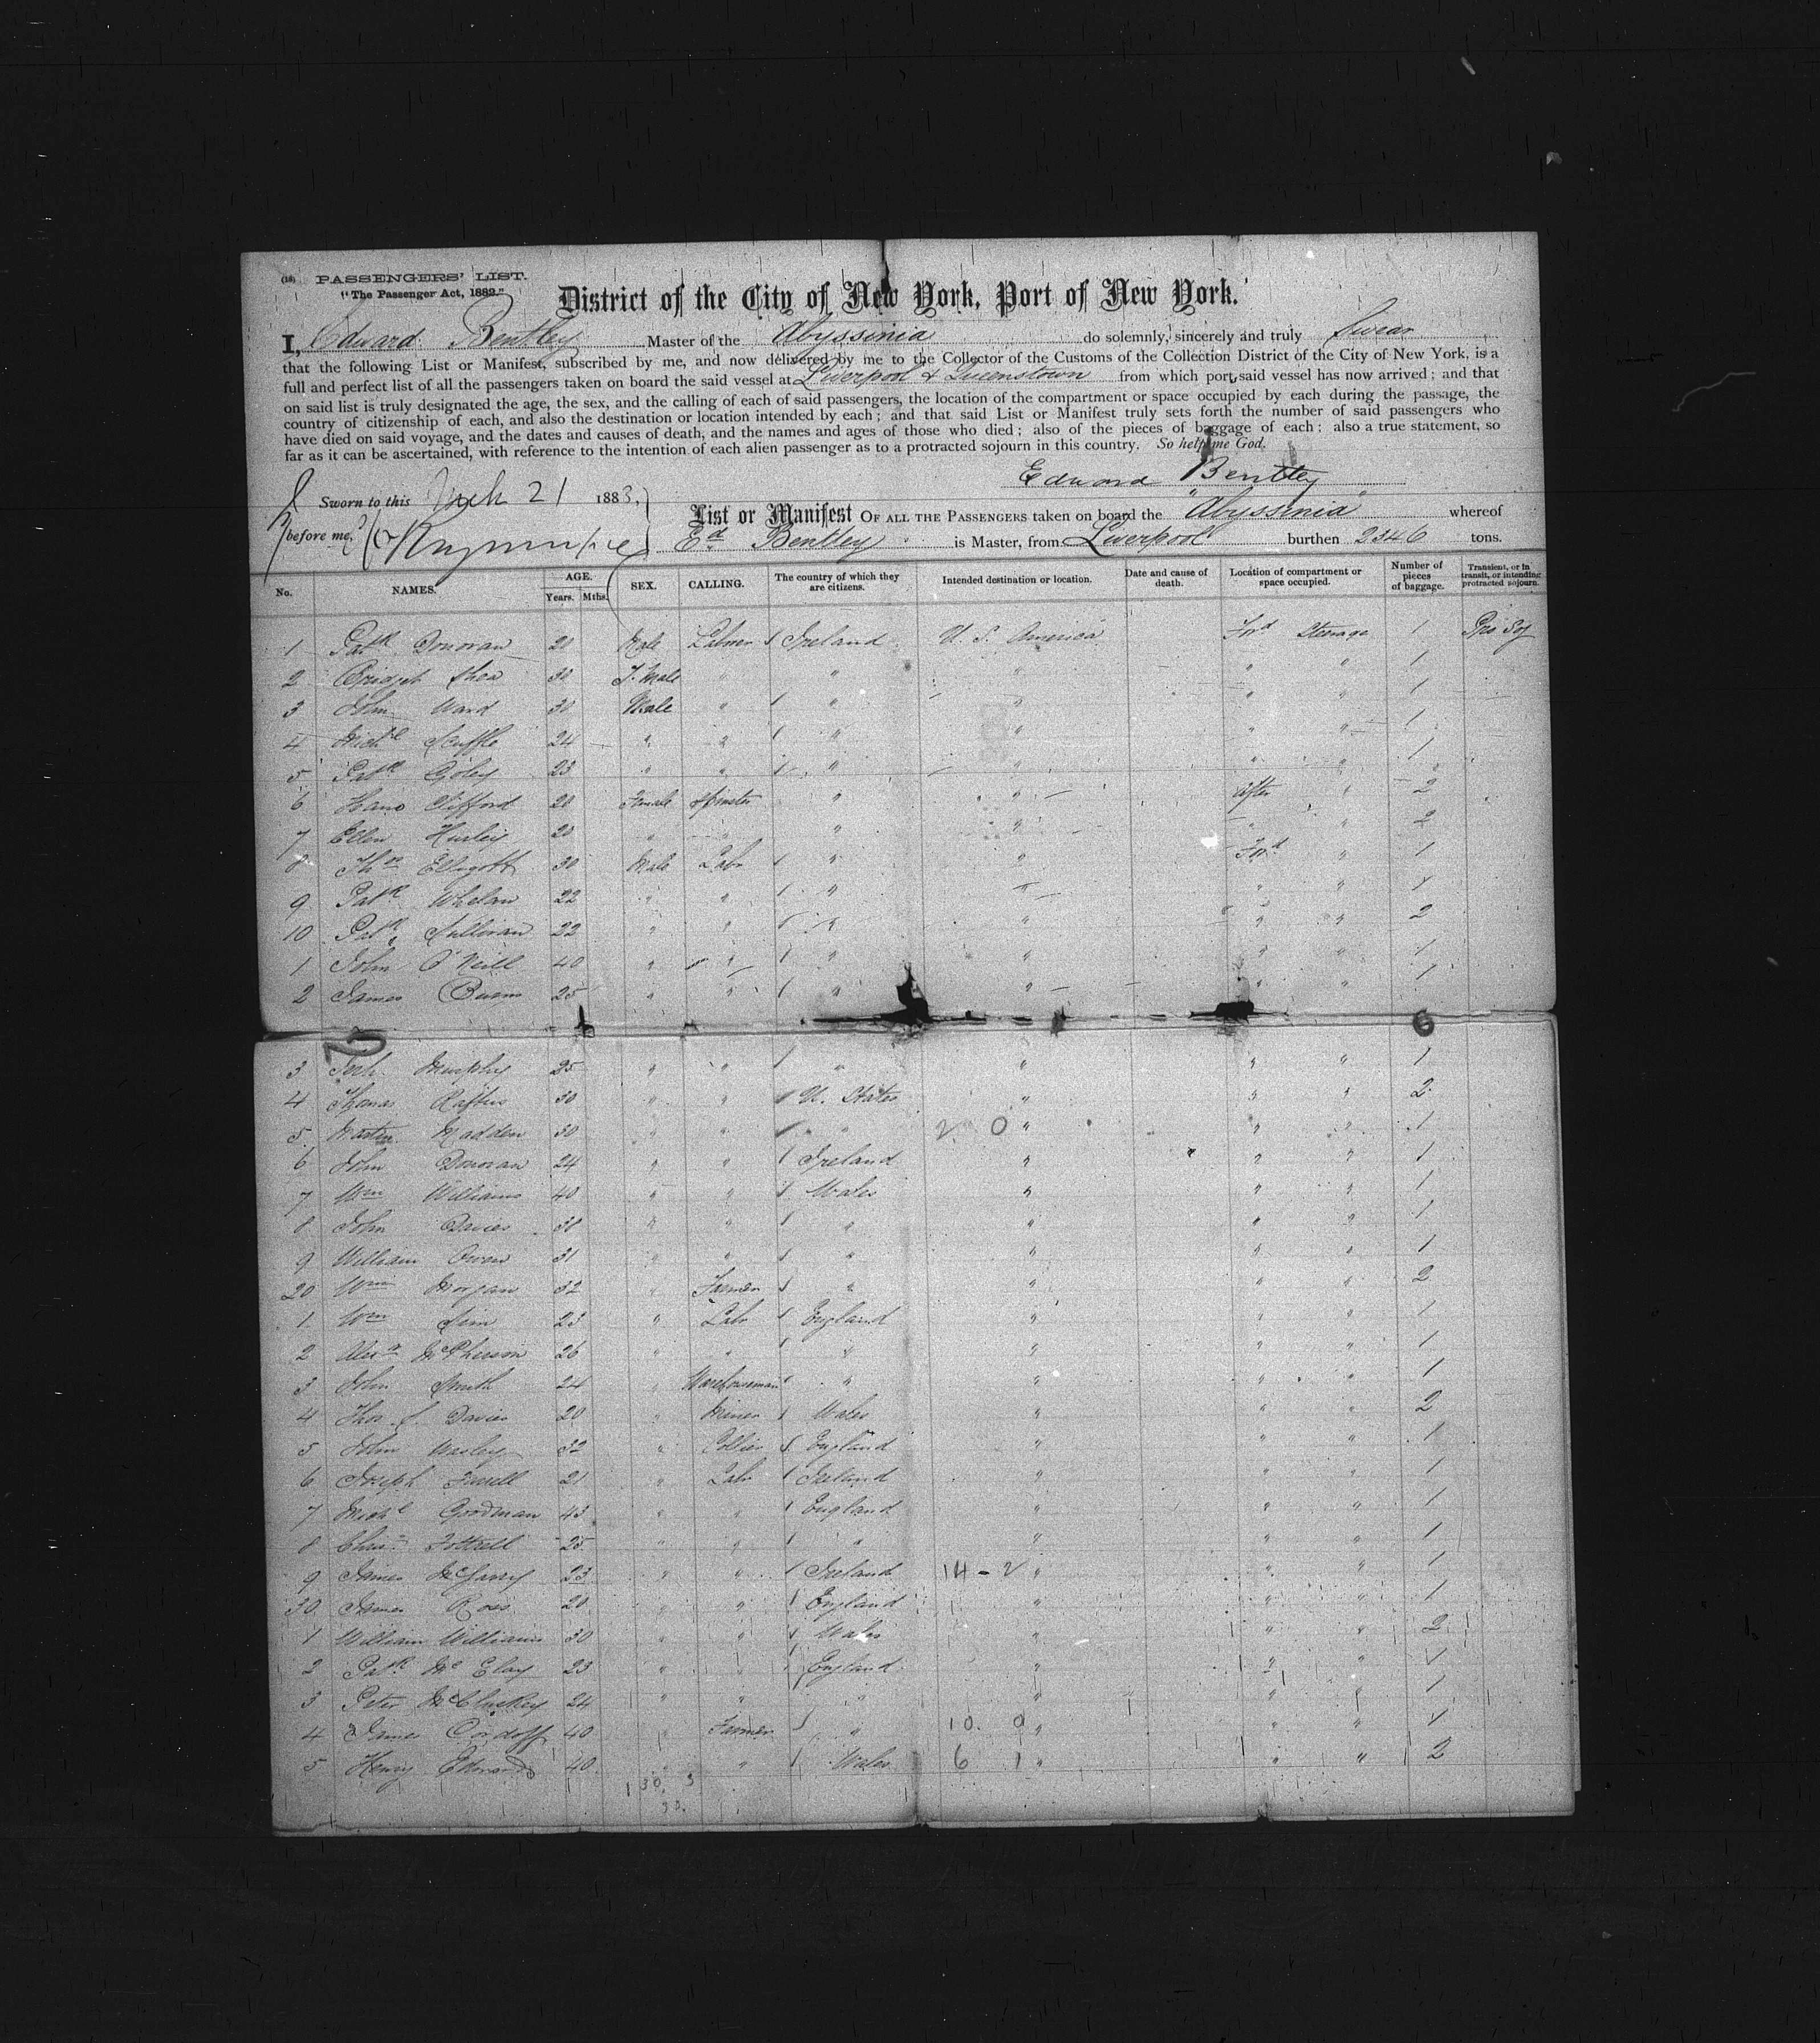 (18) PASSENGERS' LIST.
"The Passenger Act, 1882."
District of the City of New York, Port of New York.
I, Edward Bentley Master of the Abyssinia do solemnly, sincerely and truly Swear
that the following List or Manifest, subscribed by me, and now delivered by me to the Collector of the Customs of the Collection District of the City of New York, is a
full and perfect list of all the passengers taken on board the said vessel at Liverpool & Queenstown from which port said vessel has now arrived; and that
on said list is truly designated the age, the sex, and the calling of each of said passengers, the location of the compartment or space occupied by each during the passage, the
country of citizenship of each, and also the destination or location intended by each; and that said List or Manifest truly sets forth the number of said passengers who
have died on said voyage, and the dates and causes of death, and the names and ages of those who died; also of the pieces of baggage of each; also a true statement, so
far as it can be ascertained, with reference to the intention of each alien passenger as to a protracted sojourn in this country. So help me God.
Edward Bentley
Sworn to this Mch 21 1883,
before me,
List or Manifest OF ALL THE PASSENGERS taken on board the "Abyssinia" whereof
Ed Bentley is Master, from Liverpool burthen 2346 tons.
No. NAMES. AGE. Years. Mths. SEX. CALLING. The country of which they are citizens. Intended destination or location. Date and cause of death. Location of compartment or space occupied. Number of pieces of baggage. Transient, or in transit, or intending protracted sojourn.
1 Patk Donovan 20 Male Labourer Ireland U. S. America Ford Steerage 1 Pro Soj
2 Bridget Shea 30 F. Male " " " " " 1
3 John Ward 30 Male " " " " " 1
4 Michl 24 " " " " " " 1
5 Patk 23 " " " " " " 1
6 Clifford 20 Female Spinster " " After " 2
7 Ellen Hurley 20 " " " " " " 2
8 Thos Elligott 30 Male Labr " " Ford " 1
9 Patk Whelan 22 " " " " " " 1
10 Patk Sullivan 22 " " " " " " 2
1 John O'Neill 40 " " " " " " 1
2 James Burns 25 " " " " " " 1
3 Murphy 25 " " " " " " 1
4 Thomas Raftus 30 " " U. States " " " 2
5 Martin Madden 30 " " " 2 0 " " " 1
6 John Donovan 24 " " Ireland " " " 1
7 Wm Williams 40 " " Wales " " " 1
8 John Davies 38 " " " " " " 1
9 William Owen 31 " " " " " " 1
20 Wm Morgan 32 " Farmer " " " " 2
1 Wm Sim 23 " Labr England " " " 1
2 Alexr McPherson 26 " " " " " " 1
3 John Smith 24 " Warehouseman " " " " 1
4 Thos. J. Davies 20 " Miner Wales " " " 2
5 John Wasley 32 " Collier England " " " 1
6 Joseph Farrell 21 " Labr Ireland " " " 1
7 Michl Goodman 43 " " England " " " 1
8 Fottrell 25 " " " " " " 1
9 James McGarry 23 " " Ireland 14 - 2 " " " 1
30 James Ross 20 " " England " " " 1
1 William Williams 30 " " Wales " " " 2
2 Patk Mc Elay 23 " " England " " " 1
3 Peter McCluskey 24 " " " " " " 1
4 James 40 " Farmer " 10. 0 " " " 1
5 Henry Edwards 40 " " Wales 6 1 " " " 2
1 30. 3